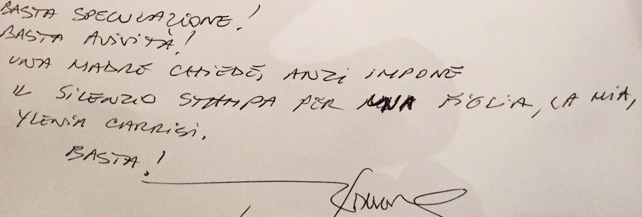 BASTA SPECULAZIONE!
BASTA AVIDITÀ!
UNA MADRE CHIEDE, ANZI IMPONE
IL SILENZIO STAMPA PER UNA FIGLIA, LA MIA,
YLENIA CARRISI.
BASTA!